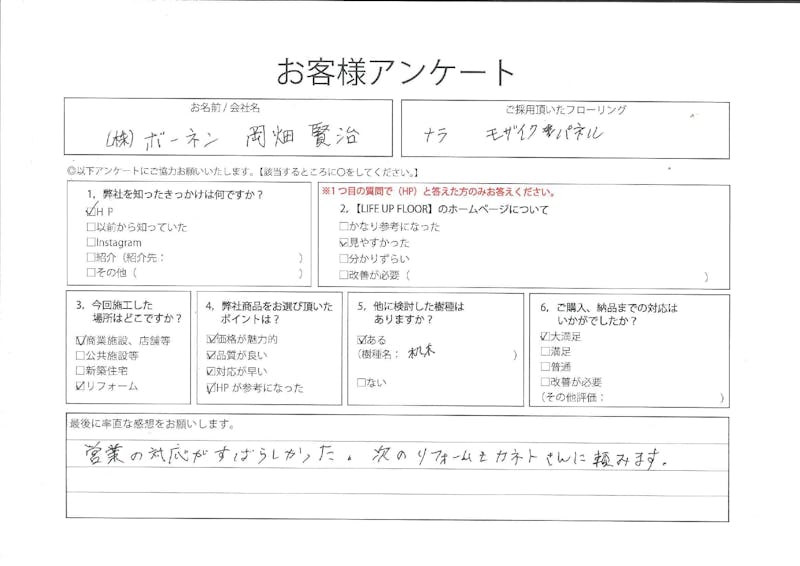 お客様アンケート
お名前 / 会社名
(株) ボーネン 岡畑 賢治
ご採用頂いたフローリング
ナラ モザイクパネル
◎以下アンケートにご協力お願いいたします。【該当するところに〇をしてください。】
1，弊社を知ったきっかけは何ですか？
☑HP
□以前から知っていた
□Instagram
□紹介（紹介先： ）
□その他（ ）
※1つ目の質問で（HP）と答えた方のみお答えください。
2，【LIFE UP FLOOR】のホームページについて
□かなり参考になった
☑見やすかった
□分かりずらい
□改善が必要（ ）
3，今回施工した
場所はどこですか？
☑商業施設、店舗等
□公共施設等
□新築住宅
☑リフォーム
4，弊社商品をお選び頂いた
ポイントは？
☑価格が魅力的
☑品質が良い
☑対応が早い
☑HPが参考になった
5，他に検討した樹種は
ありますか？
☑ある
（樹種名： ）
□ない
6，ご購入、納品までの対応は
いかがでしたか？
☑大満足
□満足
□普通
□改善が必要
（その他評価： ）
最後に率直な感想をお願いします。
営業の対応がすばらしかった。次のリフォームもカネトさんに頼みます。